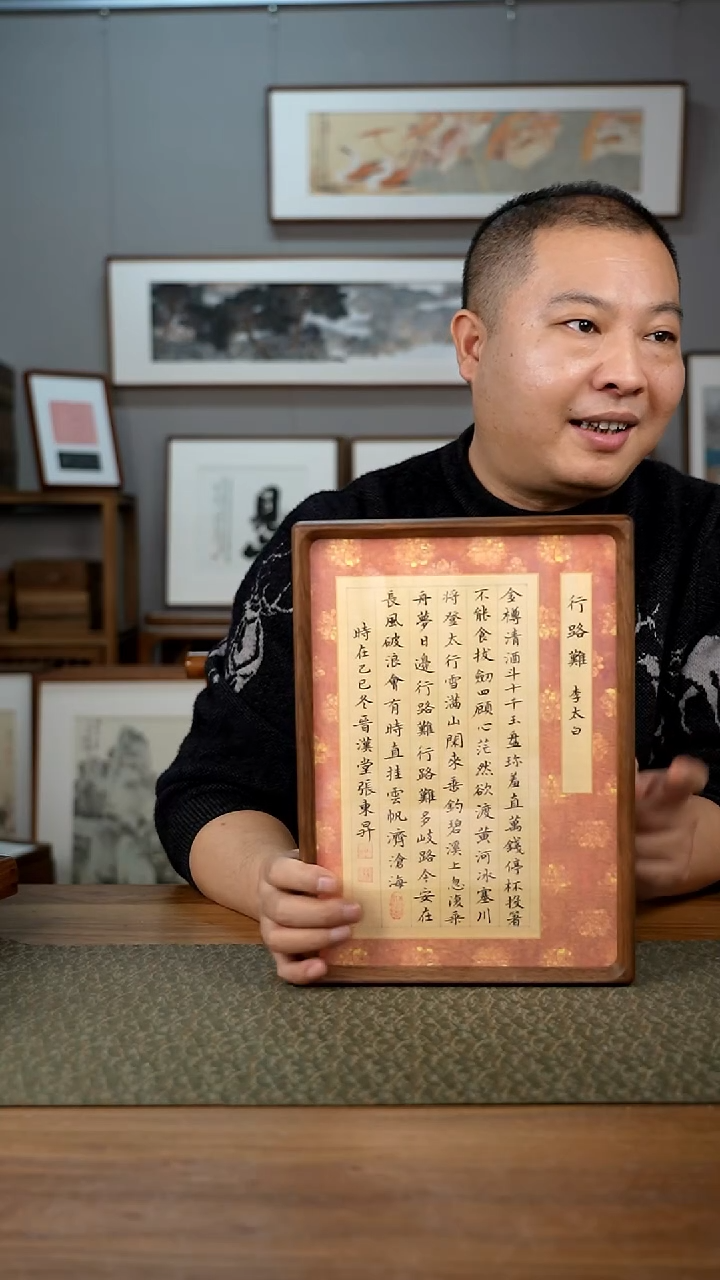 行路難 李太白
金樽清酒斗十千玉盤珍羞直萬錢停杯投箸
不能食拔劍四顧心茫然欲渡黃河冰塞川
將登太行雪滿山閑來垂釣碧溪上忽復乘
舟夢日邊行路難行路難多岐路今安在
長風破浪會有時直挂雲帆濟滄海
時在乙巳冬晉漢堂張東昇